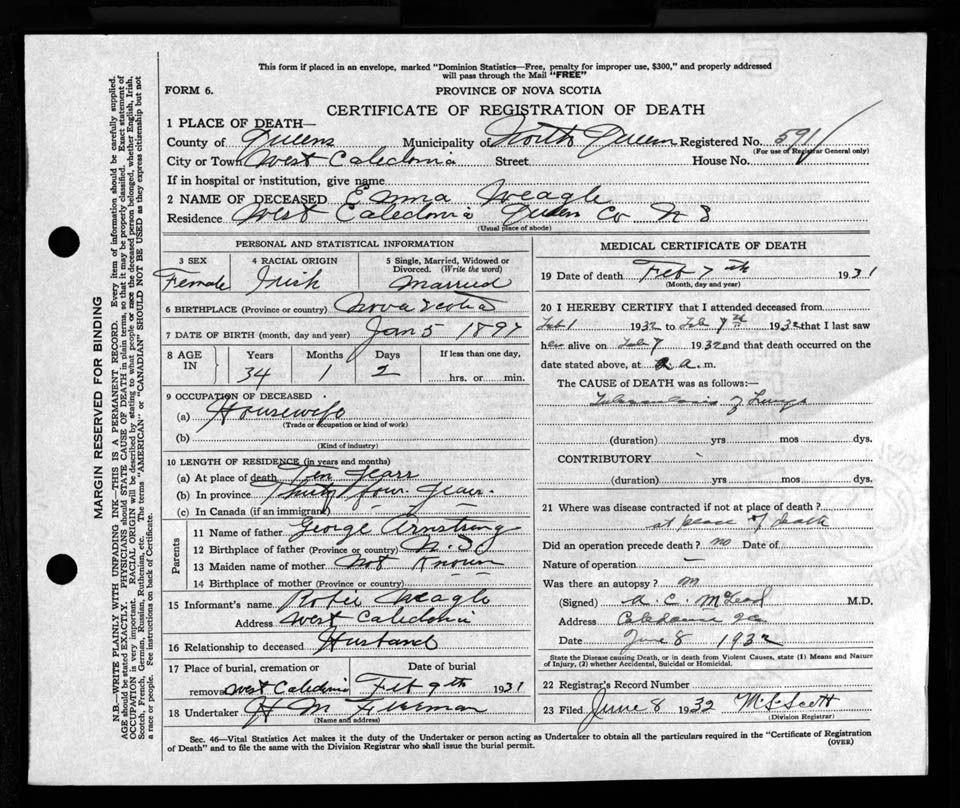 This form if placed in an envelope, marked "Dominion Statistics—Free, penalty for improper use, $300," and properly addressed
will pass through the Mail "FREE"
FORM 6.
PROVINCE OF NOVA SCOTIA
CERTIFICATE OF REGISTRATION OF DEATH
1 PLACE OF DEATH—
County of Queens Municipality of North Queen Registered No. 591
(For use of Registrar General only)
City or Town West Caledonia Street House No.
If in hospital or institution, give name
2 NAME OF DECEASED Emma Weagle
Residence West Caledonia Queen Co N S
(Usual place of abode)
PERSONAL AND STATISTICAL INFORMATION
3 SEX 4 RACIAL ORIGIN 5 Single, Married, Widowed or
Divorced. (Write the word)
Female Irish Married
6 BIRTHPLACE (Province or country) Nova Scotia
7 DATE OF BIRTH (month, day and year) Jan 5 1897
8 AGE IN Years Months Days If less than one day,
34 1 2 hrs. or min.
9 OCCUPATION OF DECEASED
(a) Housewife
(Trade or occupation or kind of work)
(b)
(Kind of industry)
10 LENGTH OF RESIDENCE (in years and months)
(a) At place of death Ten Years
(b) In province Thirty four Years.
(c) In Canada (if an immigrant)
Parents
11 Name of father George Armstrong
12 Birthplace of father (Province or country) N. S
13 Maiden name of mother Not Known
14 Birthplace of mother (Province or country)
15 Informant's name Weagle
Address West Caledonia
16 Relationship to deceased Husband
17 Place of burial, cremation or Date of burial
removal West Caledonia Feb 9th 1931
18 Undertaker H M Freeman
(Name and address)
MEDICAL CERTIFICATE OF DEATH
19 Date of death Feb 7th 1931
(Month, day and year)
20 I HEREBY CERTIFY that I attended deceased from
Feb 1 1932 to Feb 7th 1932 that I last saw
her alive on Feb 7 1932 and that death occurred on the
date stated above, at a. m.
The CAUSE of DEATH was as follows:—
Tuberculosis of Lungs
(duration) yrs mos dys.
CONTRIBUTORY
(duration) yrs mos dys.
21 Where was disease contracted if not at place of death?
at place of death
Did an operation precede death? no Date of
Nature of operation —
Was there an autopsy? no
(Signed) A. C. McLeod M.D.
Address Caledonia
Date June 8 1932
State the Disease causing Death, or in death from Violent Causes, state (1) Means and Nature
of Injury, (2) whether Accidental, Suicidal or Homicidal.
22 Registrar's Record Number
23 Filed June 8 1932 Scott
(Division Registrar)
Sec. 46—Vital Statistics Act makes it the duty of the Undertaker or person acting as Undertaker to obtain all the particulars required in the "Certificate of Registration
of Death" and to file the same with the Division Registrar who shall issue the burial permit. (OVER)
MARGIN RESERVED FOR BINDING
N.B.—WRITE PLAINLY WITH UNFADING INK—THIS IS A PERMANENT RECORD. Every item of information should be carefully supplied.
AGE should be stated EXACTLY. PHYSICIANS should STATE CAUSE OF DEATH in plain terms, so that it may be properly classified. Exact statement of
OCCUPATION is very important. RACIAL ORIGIN will be described by stating to what people or race the deceased person belonged, whether English, Irish,
Scotch, French, German, Russian, Ruthenian, etc. The terms "AMERICAN" or "CANADIAN" SHOULD NOT BE USED as they express citizenship but not
a race or people. See instructions on back of Certificate.